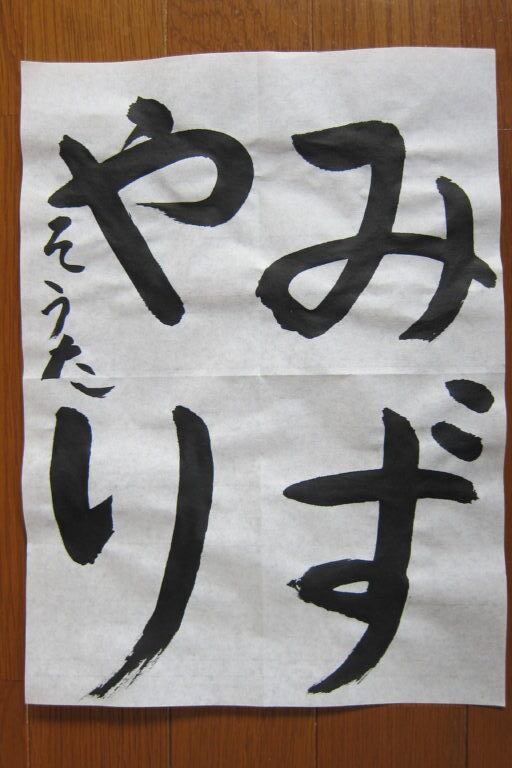 みず
やり
そうた